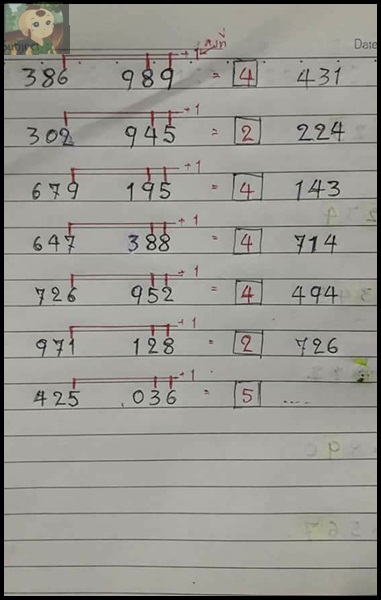 +1 คงที่
Date
386 989 = 4 431
+1
302 945 = 2 224
+1
679 195 = 4 143
+1
647 388 = 4 714
+1
726 952 = 4 494
+1
971 128 = 2 726
+1
425 036 = 5 ....